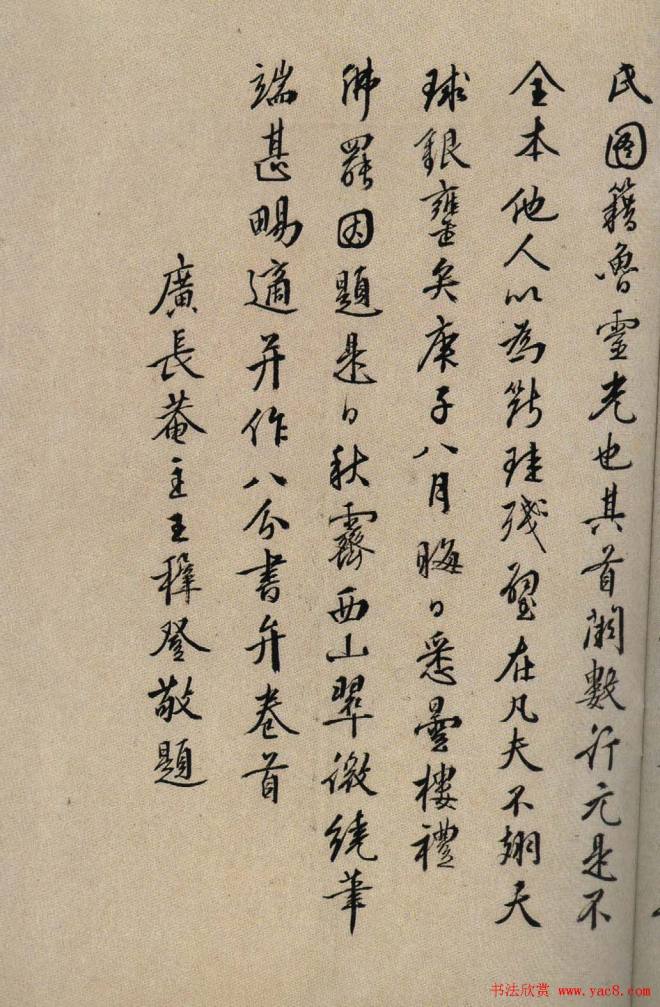 氏圖籍魯靈光也其首闕數行元是不
全本他人以為斷珪殘璧在凡夫不翅天
球銀甕矣庚子八月晦日悉曇樓禮
佛罷因題是日秋霽西山翠微繞筆
端甚賜適并作八分書弁卷首
廣長菴主王穉登敬題
书法欣赏 www.yac8.com